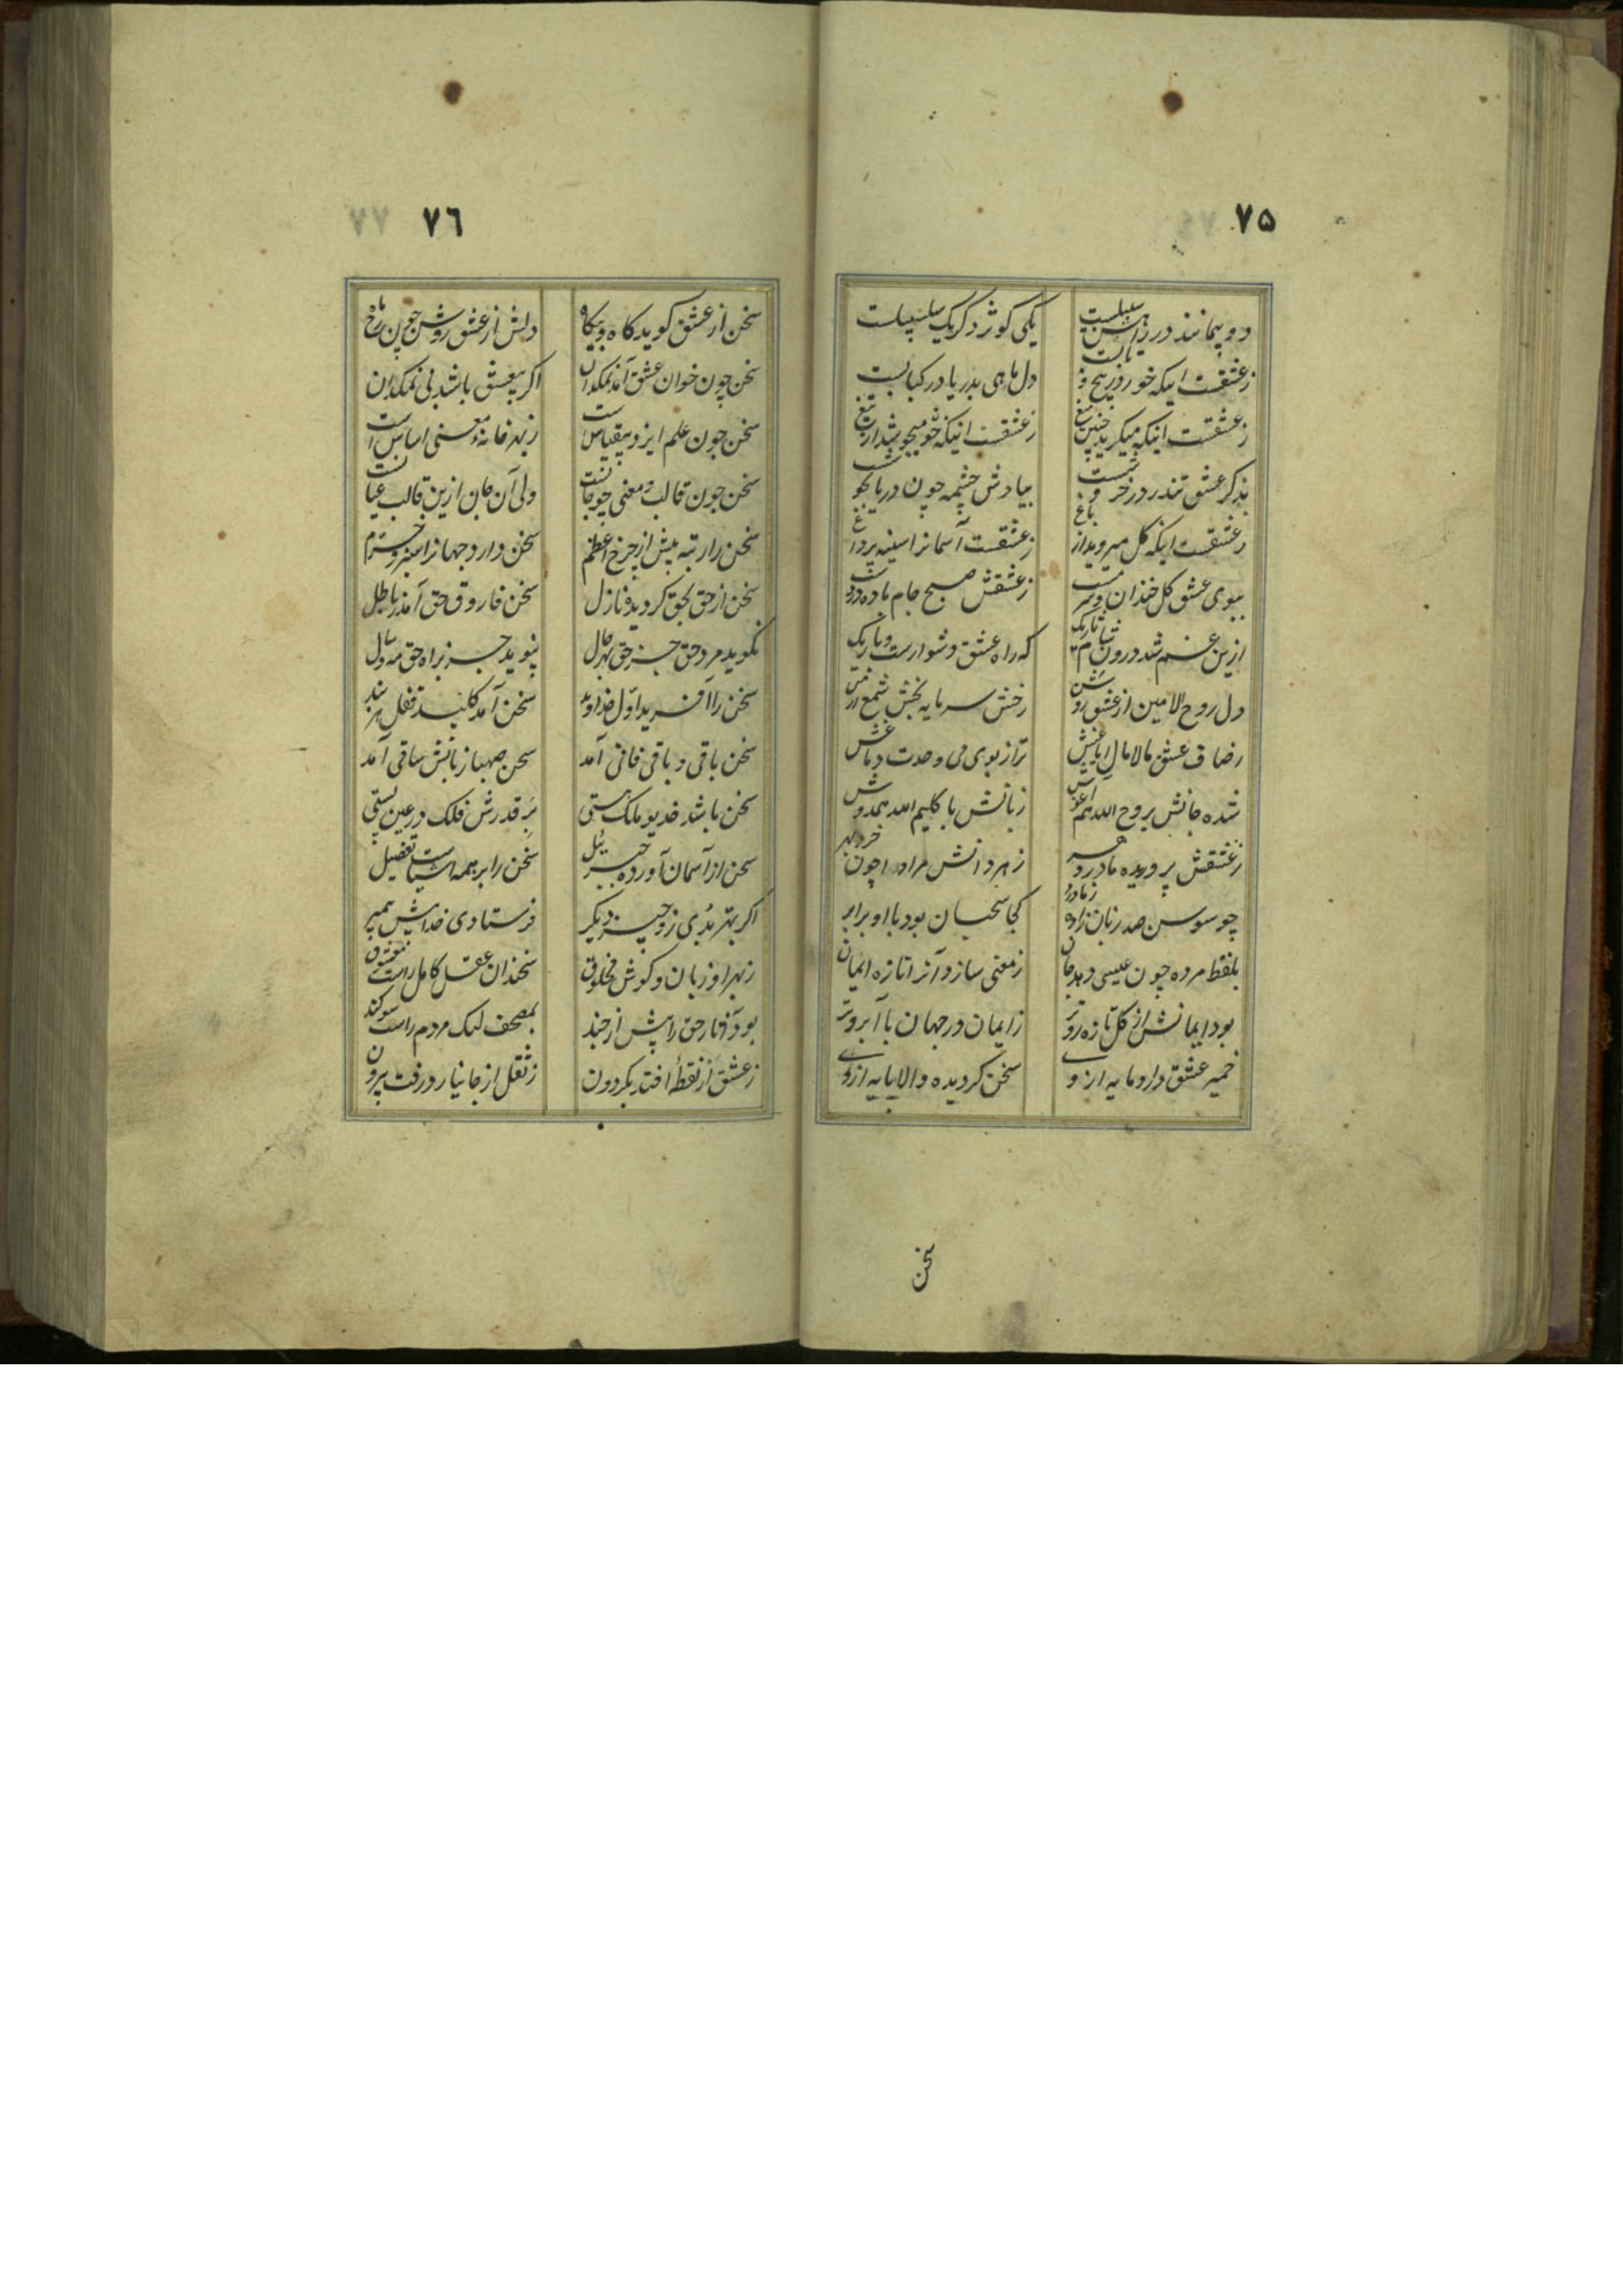 ٧٥
دو پیمانند در زیر سبیلست
یکی کوثر دکر یک سلسبیلست
زعشقست اینکه خور در پیچ و تابست
دل ماهی بدریا در کبابست
زعشقست اینکه میکرید چنین میغ
زعشقست اینکه خو میجوشد از تیغ
بذکر عشق تندر در خروشست
بیادش چشمه چون دریا بجوشست
زعشقست اینکه کل میروید از باغ
زعشقست آسمانرا سینه پرداغ
ببوی عشق کل خندان و سرمست
زعشقش صبح جام باده در دست
ازین غم شد درون شام تاریک
که راه عشق دشوارست و باریک
دل روح الامین از عشق روشن
رخش سرمایه بخش شمع
ز صاف عشق مالامال ایاغش
تر از بوی می وحدت دماغش
شده جانش بروح الله هم آغوش
زبانش با کلیم الله همدوش
زعشقش پروریده مادر دهر
زهر دانش مر او را چون خرد بهر
چو سوسن صد زبان زاده ز مادر
کجا سحبان بود با او برابر
بلفظ مرده چون عیسی دهد جان
زمعنی سازد آنرا تازه ایمان
بود ایمانش از کل تازه روتر
زایمان در جهان با آبروتر
خمیر عشق دارد مایه از وی
سخن کردیده والا پایه از وی
سخن
٧٦
سخن از عشق کوید کاه و بیکاه
دلش از عشق روشن چون رخ ماه
سخن چون خوان عشق آمد نمکدان
اکر بیعشق باشد بی نمکدان
سخن چون علم ایزد بیقیاس است
زبهر خانهٔ معنی اساس است
سخن چون قالب و معنی چو جانست
ولی آن جان ازین قالب عیانست
سخن را رتبه بیش از چرخ اعظم
سخن دارد جهانرا سبز و خرم
سخن از حق بحق کردیده نازل
سخن فاروق حق آمد ز باطل
نکوید مرد حق جز حق بهر حال
نپوید جز براه حق مه و سال
سخن را آفرید اول خداوند
سخن آمد کلید قفل هر بند
سخن باقی و باقی فانی آمد
سخن صهبا زبانش ساقی آمد
سخن باشد خدیو ملک هستی
بر قدرش فلک در عین پستی
سخن از آسمان آورده جبریٔیل
سخن را بر همه اشیاست تفضیل
اکر بهتر بدی زو چیز دیکر
فرستادی خدایش پیمبر
زبهر او زبان و کوش مخلوق
سخندان عقل کامل راست معشوق
بود کفتار حق را پیش ازچند
بمصحف لیک مردم راست سوکند
زعشق ار نقطهٔ افتد بکردون
زثقل از جانیارد رفت بیرون